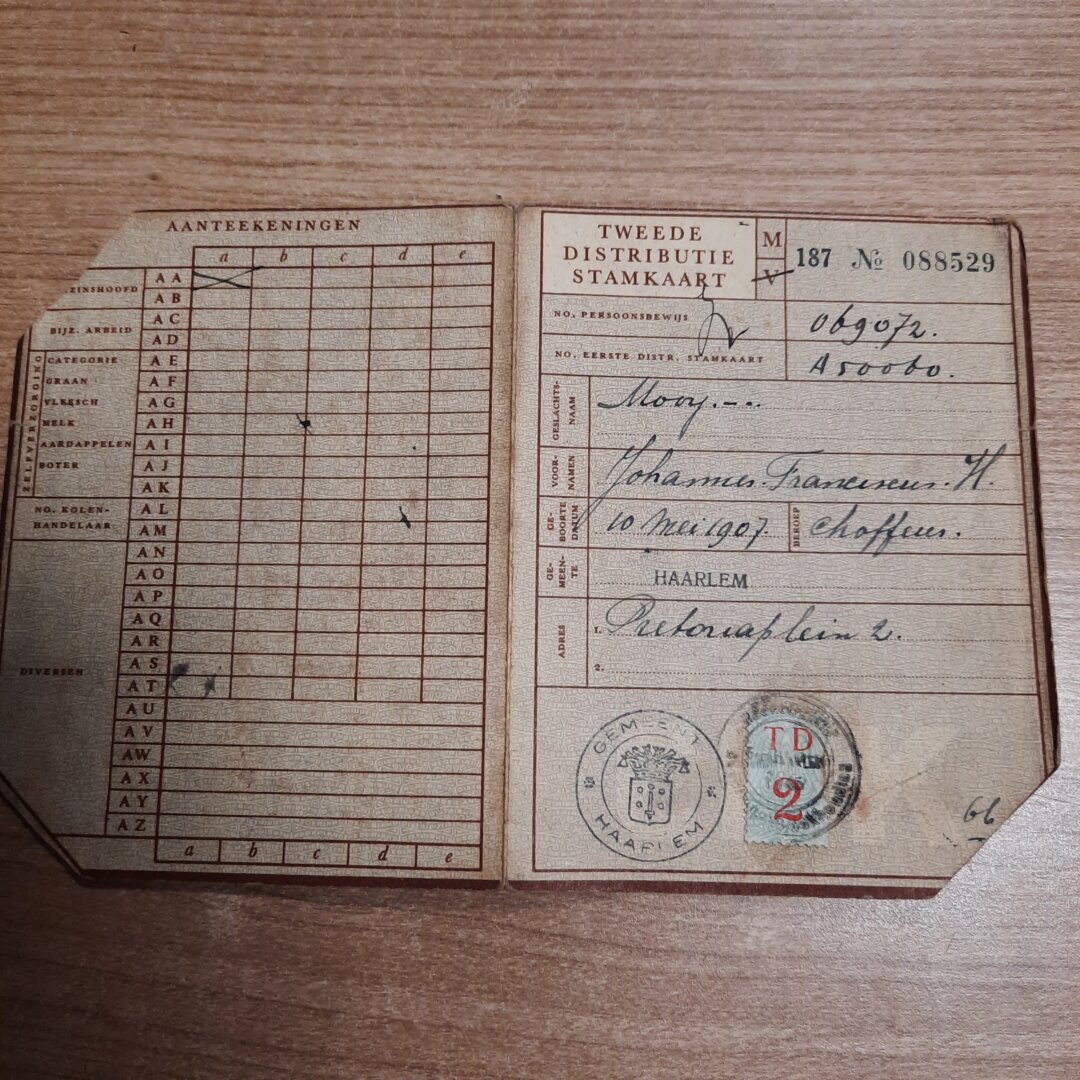 AANTEEKENINGEN
a b c d e
ZINSHOOFD
AA
AB
BIJZ. ARBEID
AC
AD
ZELFVERZORGING
CATEGORIE
AE
GRAAN
AF
VLEESCH
AG
MELK
AH
AARDAPPELEN
AI
BOTER
AJ
AK
NO. KOLEN-
HANDELAAR
AL
AM
DIVERSEN
AN
AO
AP
AQ
AR
AS
AT
AU
AV
AW
AX
AY
AZ
a b c d e
TWEEDE
DISTRIBUTIE
STAMKAART
M
V
187 № 088529
NO. PERSOONSBEWIJS
069072.
NO. EERSTE DISTR. STAMKAART
A50060.
GESLACHTS-
NAAM
Mooy.--.
VOOR-
NAMEN
Johannes. Franciscus. H.
GE-
BOORTE
DATUM
10 Mei 1907.
BEROEP
choffeur.
GE-
MEEN-
TE
HAARLEM
ADRES
1. Pretoriaplein 2.
2.
GEMEENTE
HAARLEM
TD
2
66